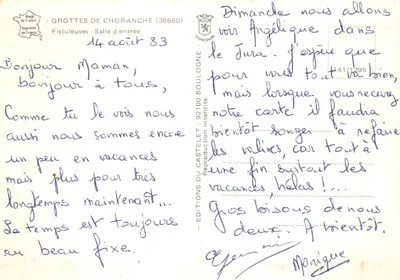 GROTTES DE CHORANCHE (38680)
Fistuleuses Salle d'entrée
14 août 83
Bonjour Maman,
bonjour à tous,
Comme tu le vois nous
aussi nous sommes encore
un peu en vacances
mais plus pour très
longtemps maintenant...
Le temps est toujours
au beau fixe.
EDITIONS DU CASTELET - 92100 BOULOGNE
Reproduction interdite
Dimanche nous allons
voir Angélique dans
le Jura. J'espère que
pour vous tout va bien,
mais lorsque vous recevrez
notre carte il faudra
bientôt songer à refaire
les valises, car tout à
une fin surtout les
vacances, hélas !...
Gros bisous de nous
deux. A bientôt.
Monique